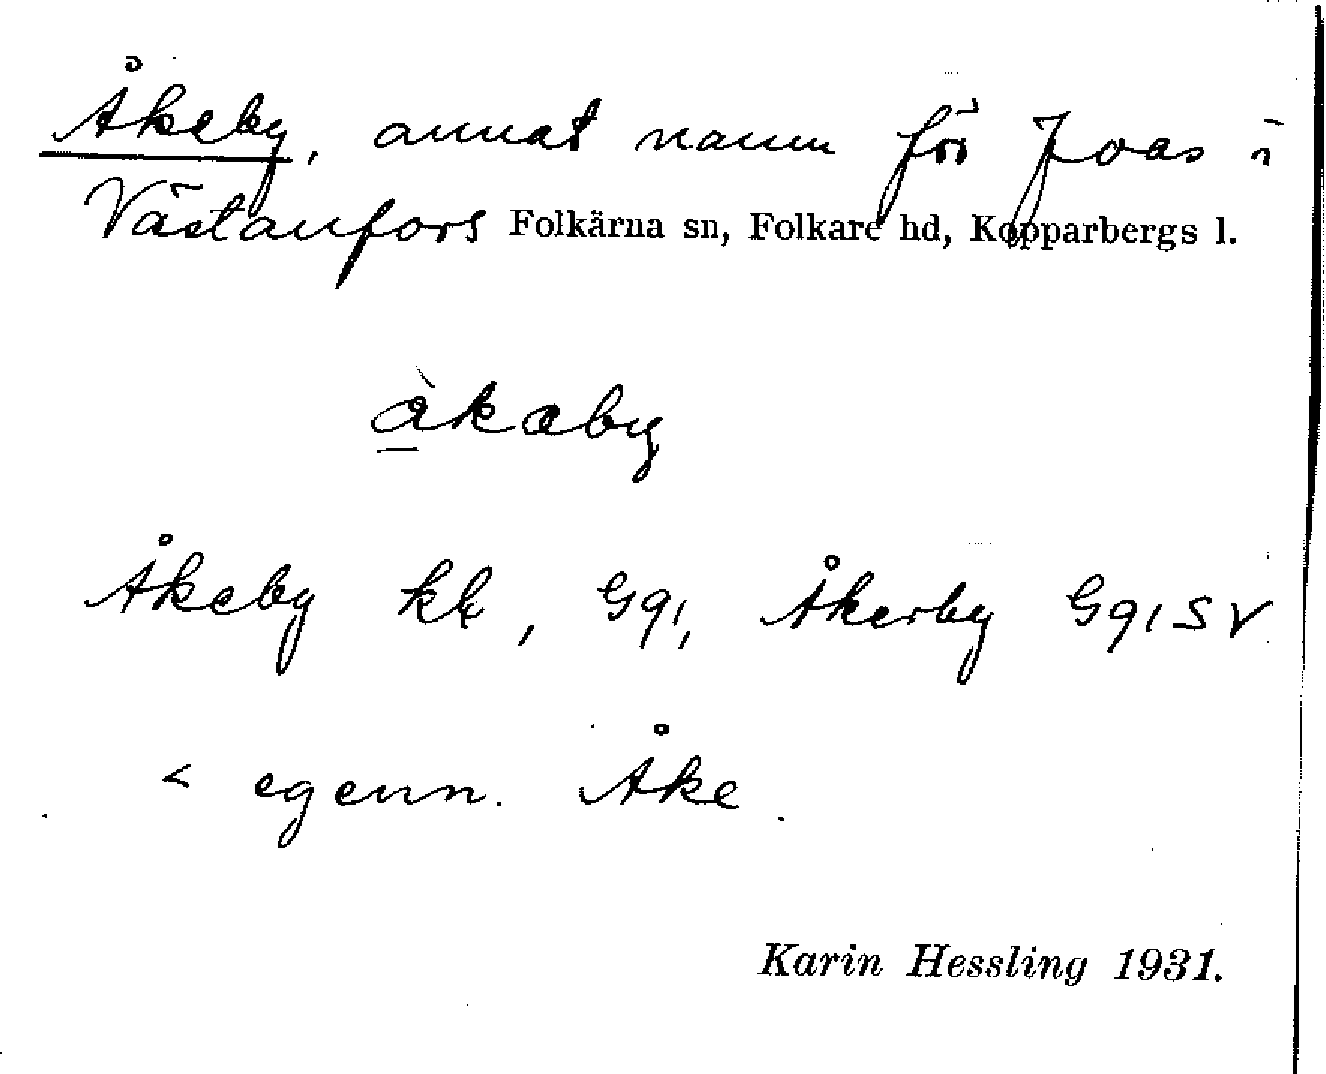 Åkeby, annat namn för Joas i
Västanfors Folkärna sn, Folkare hd, Kopparbergs l.
åkaby
Åkeby kk, G91, Åkerby G91SV
< egenn. Åke.
Karin Hessling 1931.